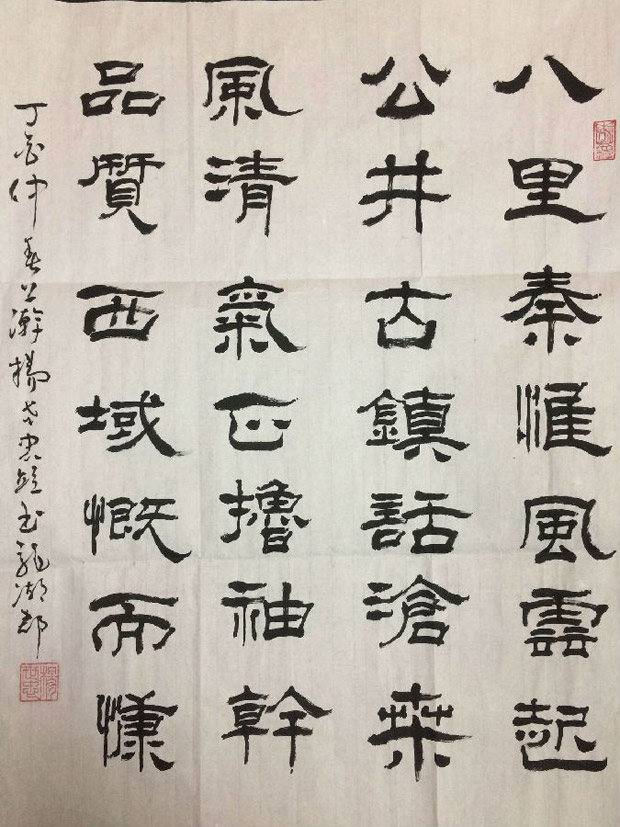 八里秦惟風雲起
公井古鎮話滄桑
風清氣正擼袖幹
品質西域慨而慷
丁酉仲春瀚楊世忠書龍湖郡